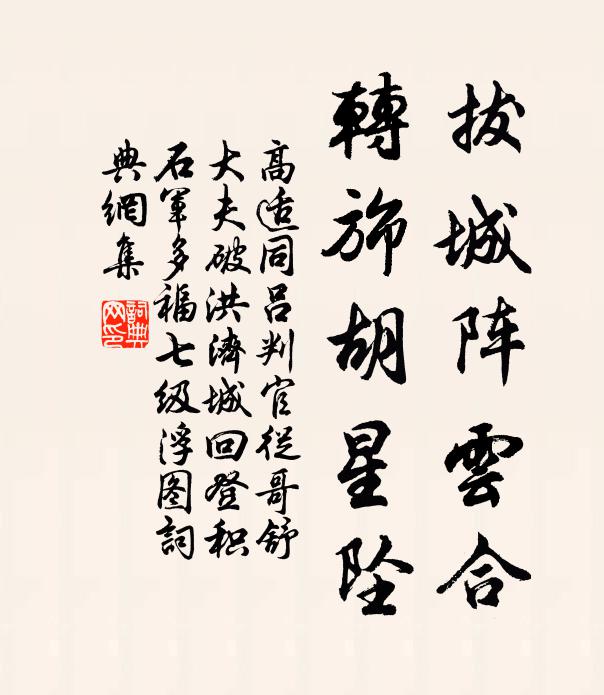 拔城阵雲合
轉旆胡星坠
高适同呂判官從哥舒
大夫破洪濟城回登积
石軍多福七级浮图詞
典網集
詞典
网印